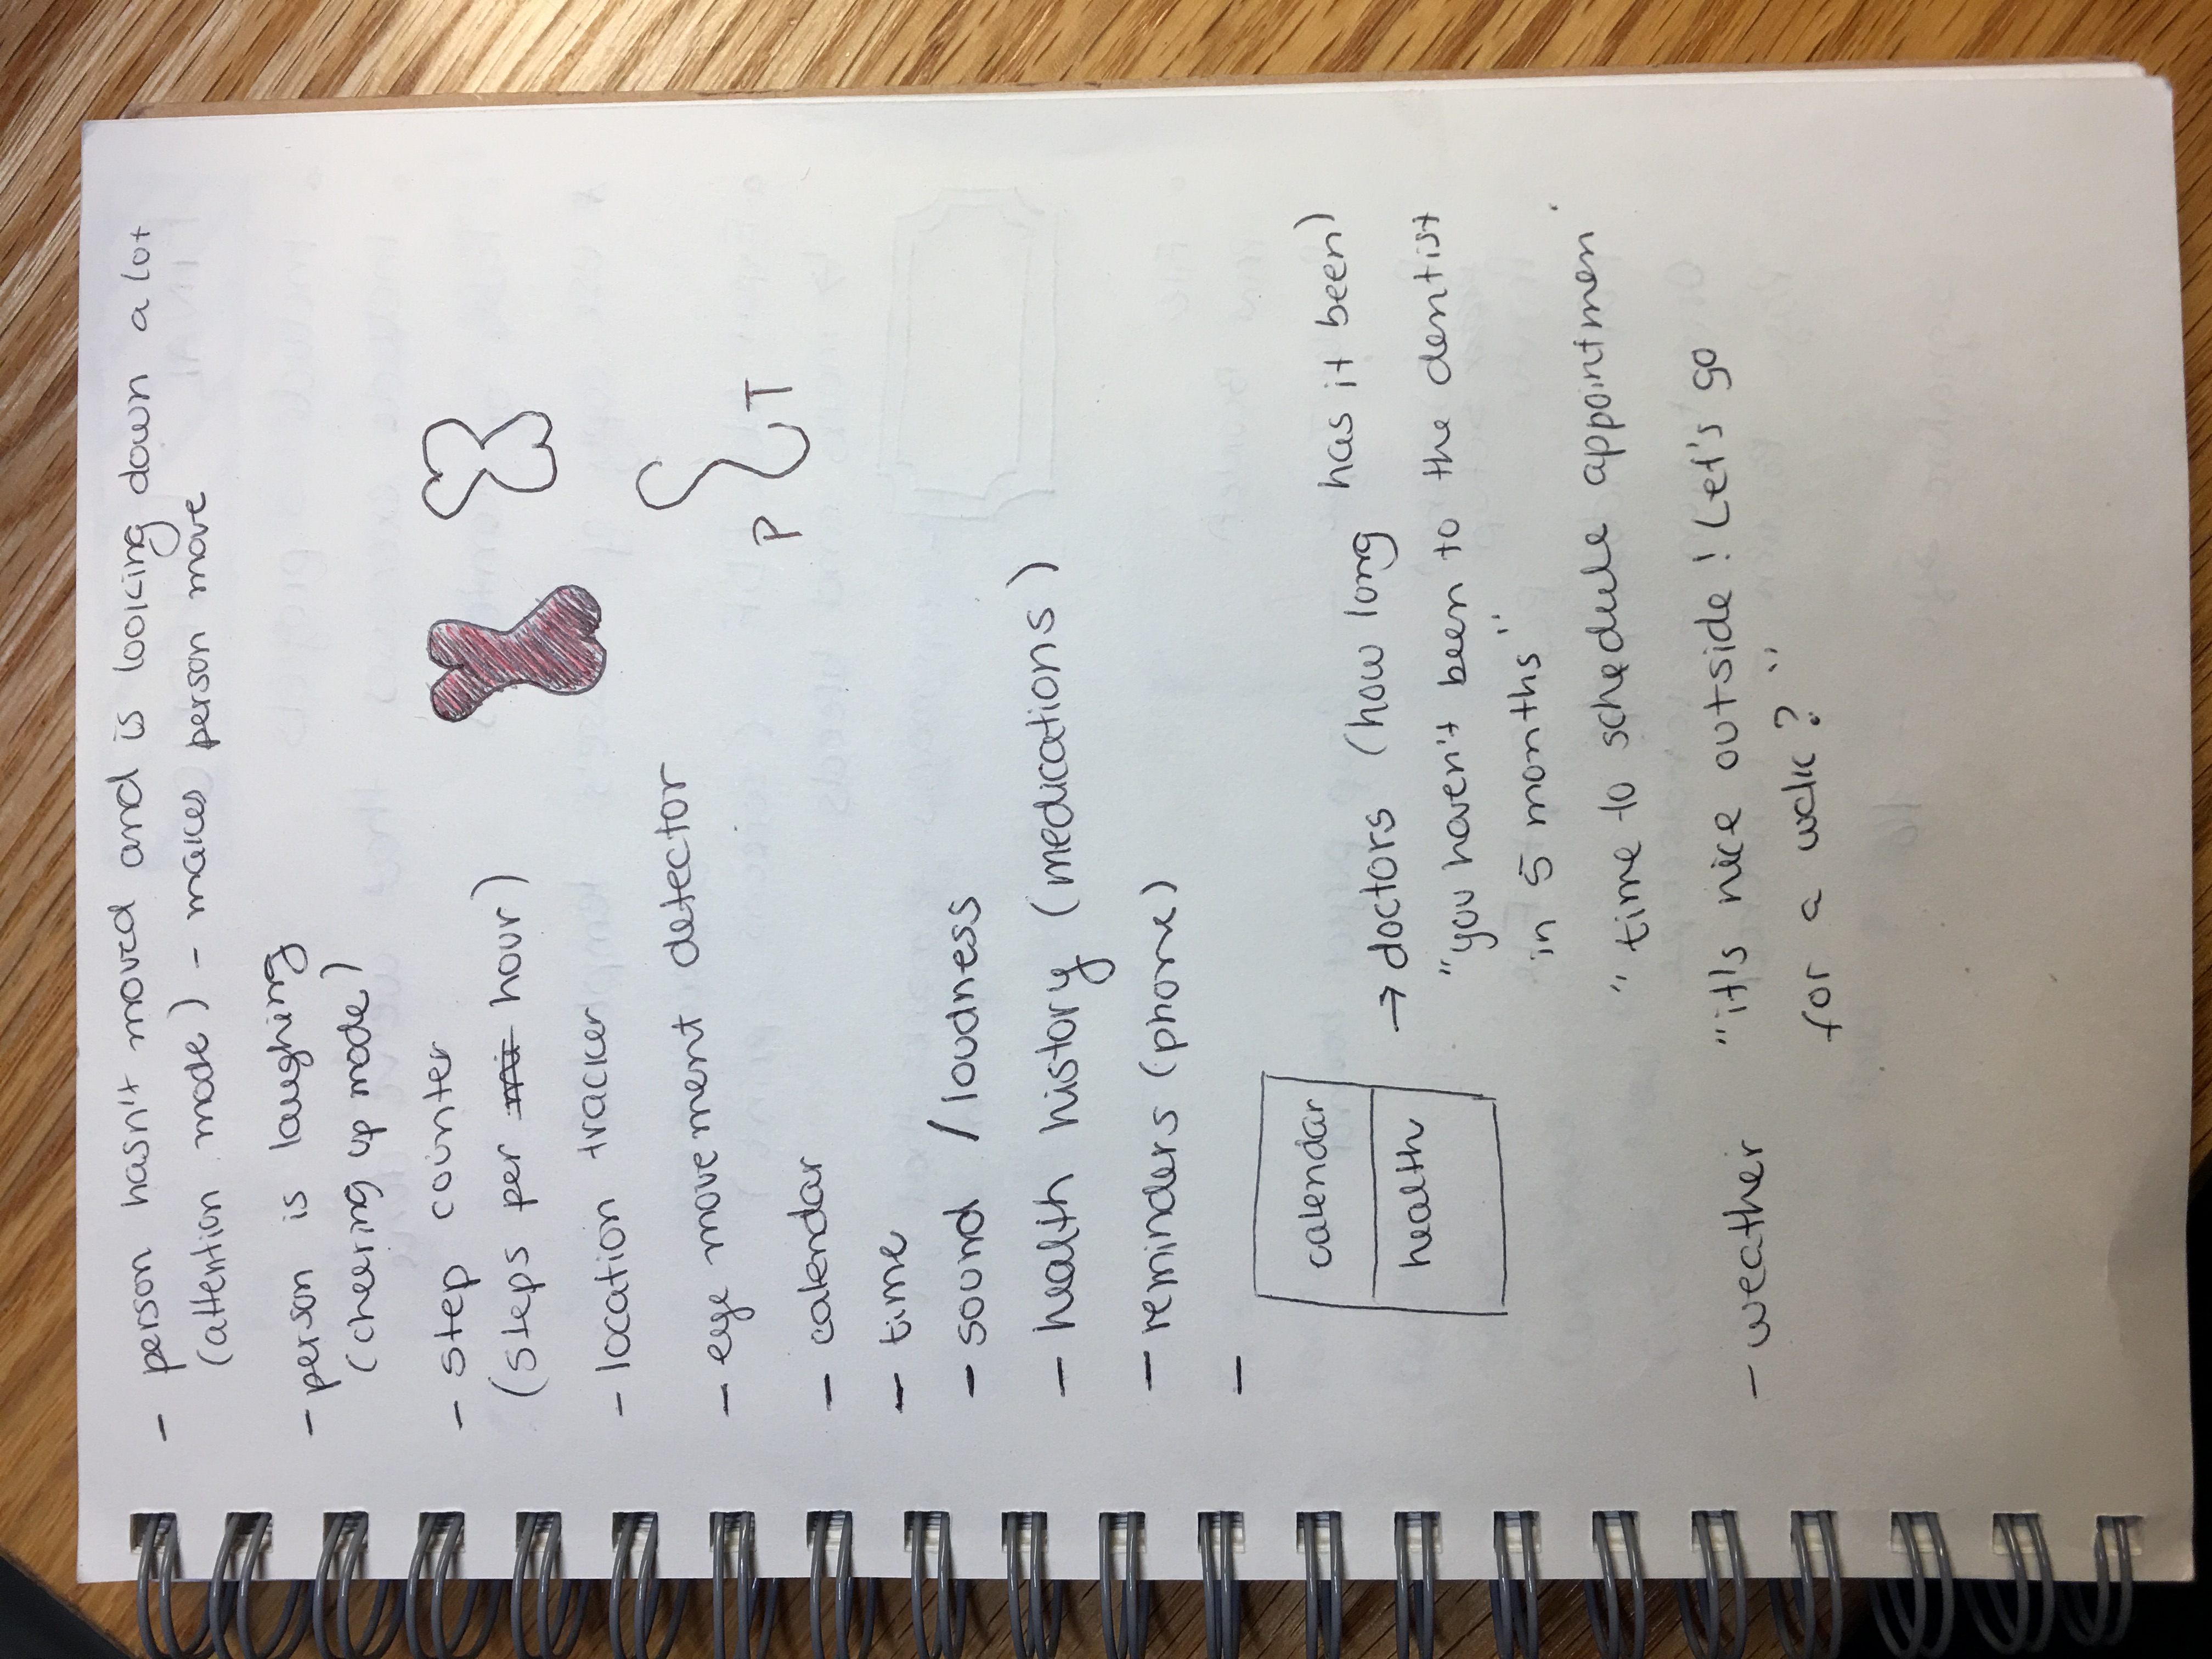 - person hasn't moved and is looking down a lot
(attention mode) - makes person move
- person is laughing
(cheering up mode)
- step counter
(steps per mi hour)
- location tracker
- eye movement detector
P T
- calendar
- time
- sound / loudness
- health history (medications)
- reminders (phone)
-
calendar
health
→ doctors (how long has it been)
"you haven't been to the dentist
in 5 months"
"time to schedule appointmen
- weather "it's nice outside! Let's go
for a walk?"